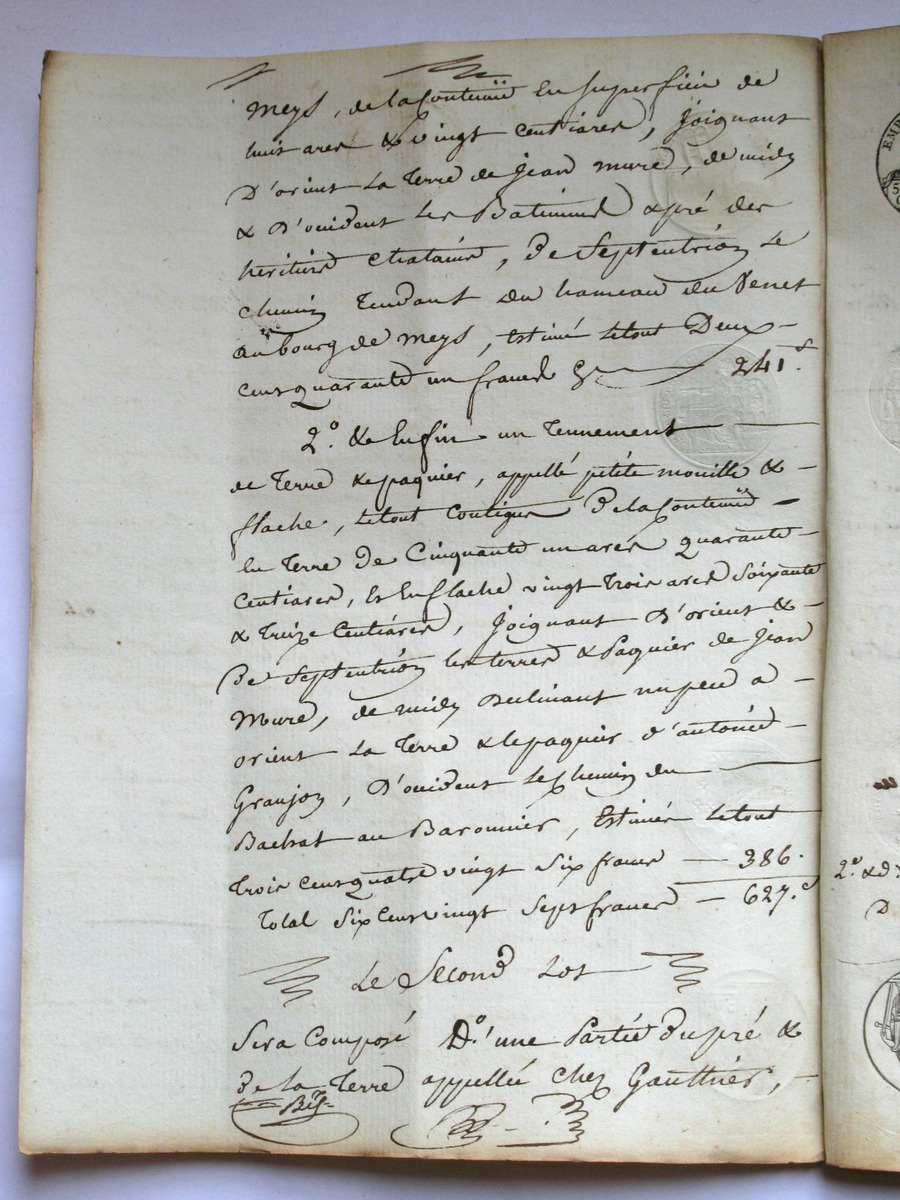 meys, de la Contenüe En superficie de
huit ares & vingt centiares, joignant
D'orient La Terre de jean mure, de midy
& D'occident les Batiments & pré des
heritiers chataine, De Septentrion Le
chemin Tendant du hameau du Venet
au bourg de meys, estimé letout Deux
cens quarante un francs 241.f
2.º & Enfin un Tennement
de Terre & paquier, appellé petite mouille &
flache, letout contigue De la Contenüe
En Terre De Cinquante un ares quarante
Centiares, Et En flache vingt Trois ares Soixante
& Treize Centiares, joignant D'orient &
De Septentrion les terres & Paquier de jean
Mure, de midy Declinant un peu a
orient La Terre & le paquier d'antoine
Granjon, D'occident Le Chemin du
Bachat au Baronnier, Estimés Letout
Trois cens quatre vingt Six francs 386.
Total Six Cens vingt Sept francs 627.f
Le Second Lot
Sera Composé D'une Partie Du pré &
De La Terre appellée Chez Gauthier,
2.º & 3
D
EMP